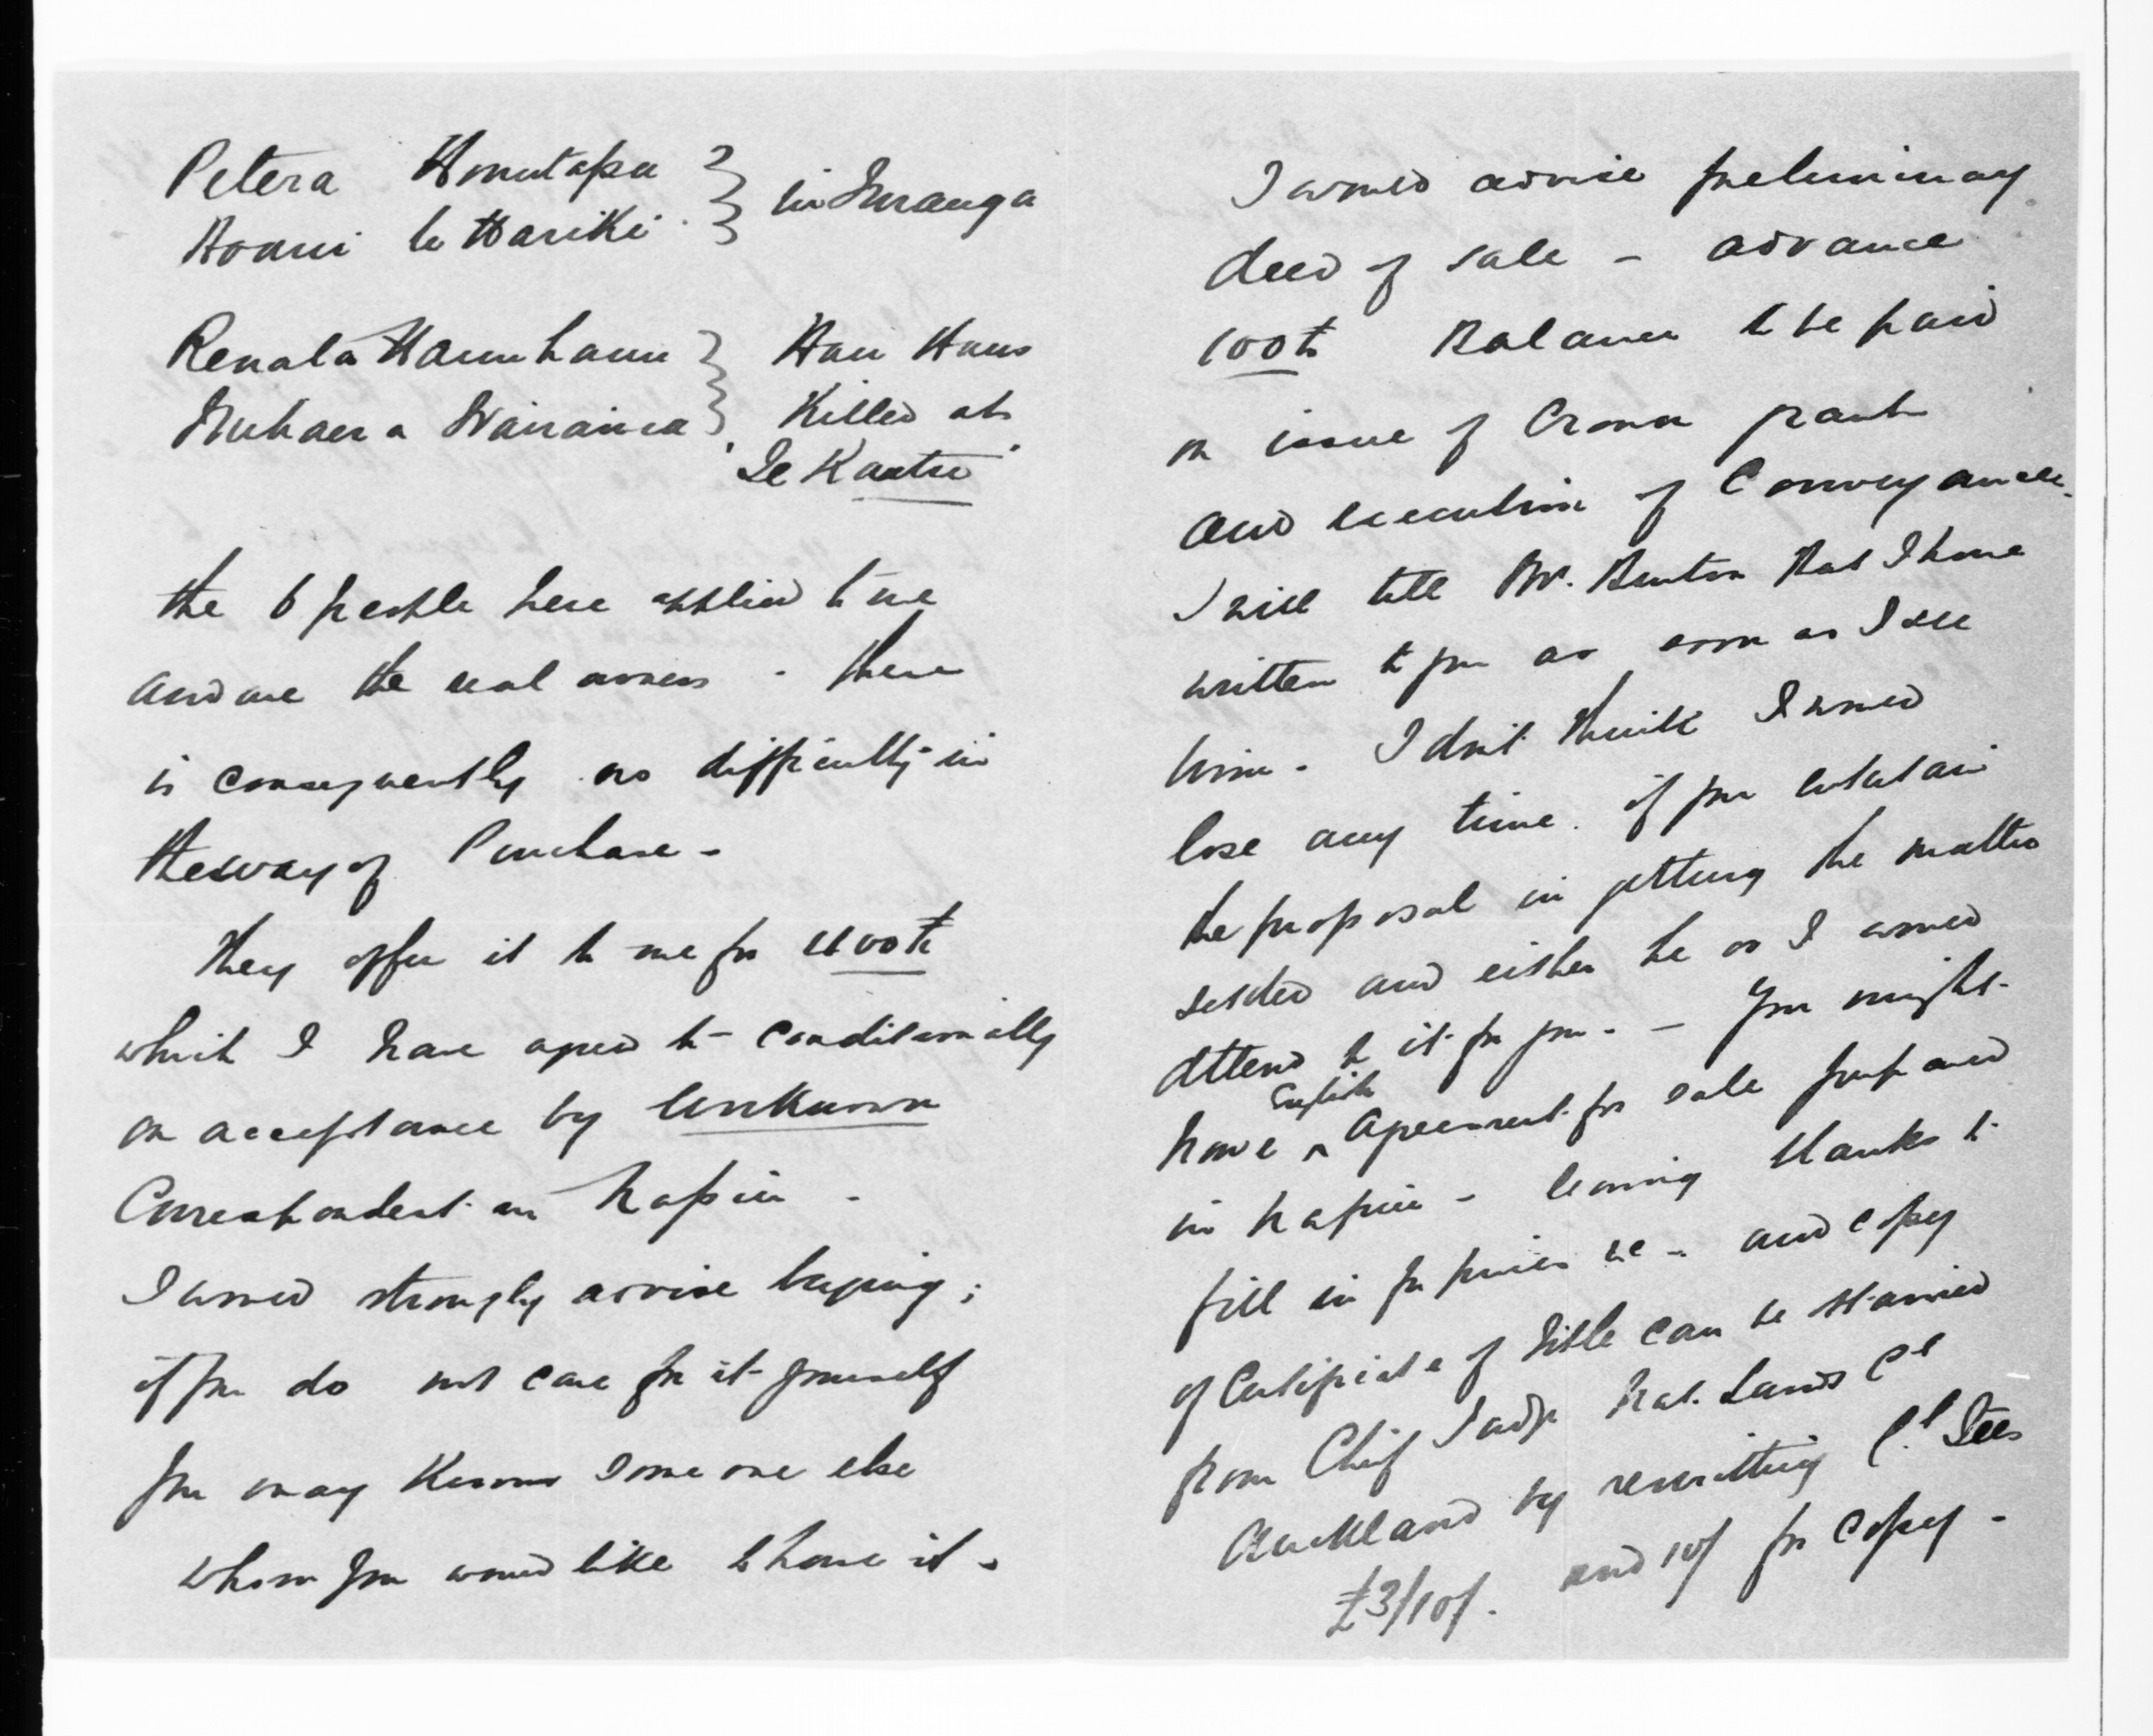 Petera Honotapu } in Turanga
Hoani te Hariki }
Renata Haumhaum } Hau Haus
Nikaera Wairaina } Killed at
"Te Kaatu"
the 6 people here applied to me
and are the real owners - there
is consequently no difficulty in
the way of Purchase -
They offer it to me for 400£
which I have agreed to - conditionally
on acceptance by Unknown
Correspondent in Napier -
I would strongly advise buying;
if you do not care for it yourself
you may know some one else
whom you would like to have it -
I would advise preliminary
deed of sale - advance
100£ Balance to be paid
on issue of Crown grant
and execution of Conveyance.
I will tell Mr. Buxton that I have
written to you as soon as I see
him. I don't think I would
lose any time if you entertain
the proposal in getting the matter
settled and either he or I would
attend to it for you. - You might
have English agreement for sale prepared
in Napier - leaving blanks to
fill in for prices &c - and copy
of Certificate of Title can be obtained
from Chief Judge Nat. Lands Ct
Auckland by remitting Ct fees
£3/10/. and 10/ for copy -